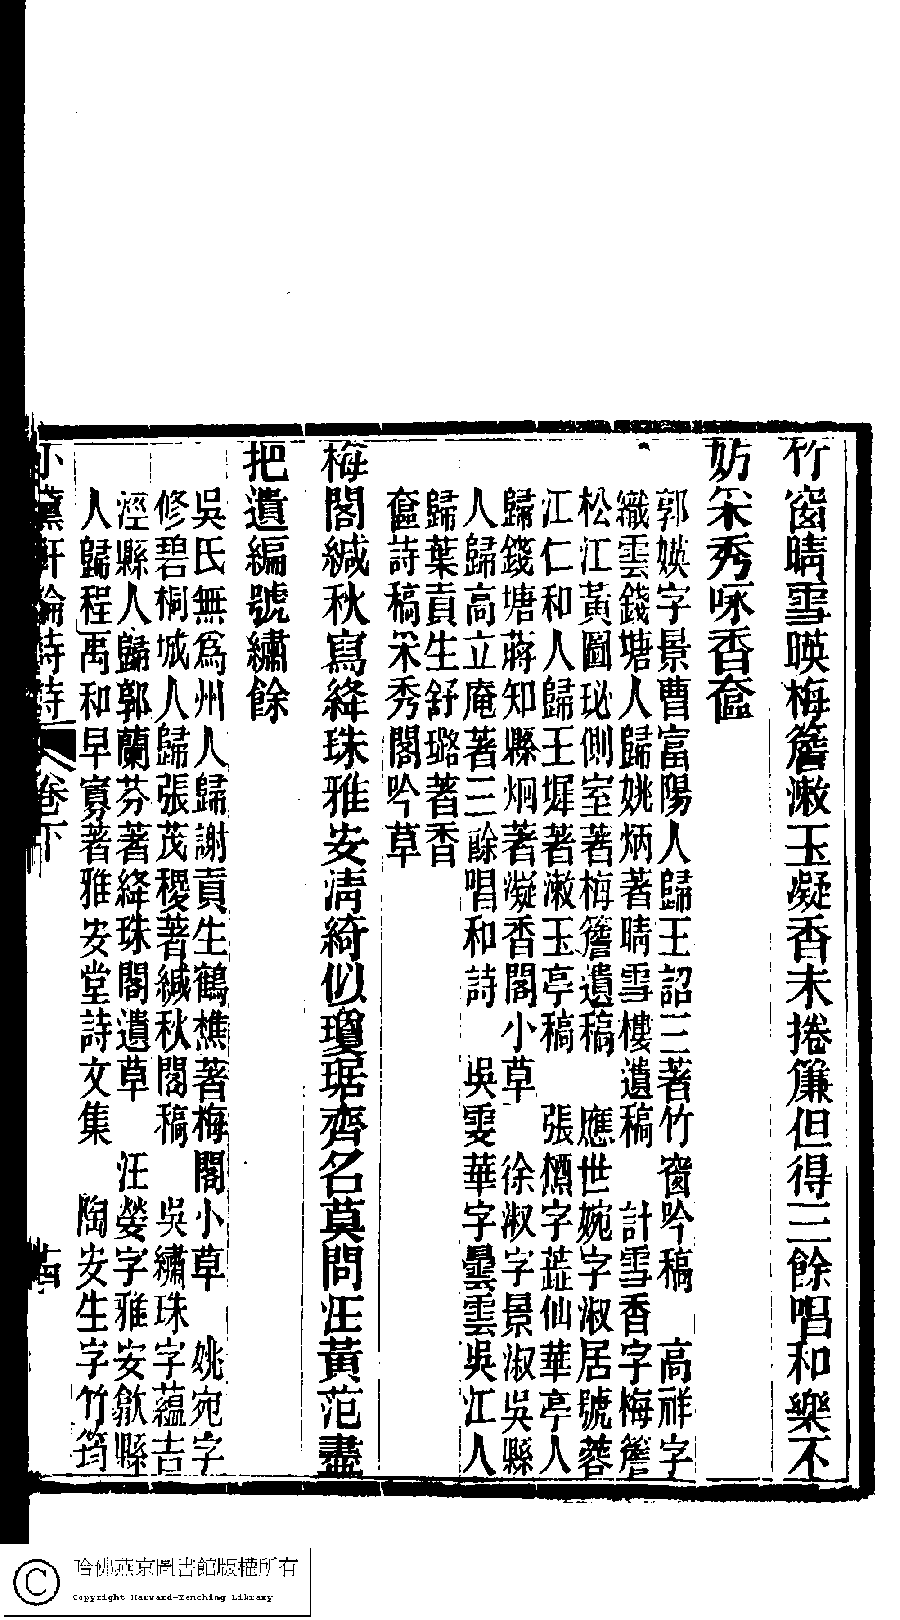 竹窗晴雪暎梅簷漱玉凝香未捲簾但得三餘唱和樂不
妨采秀咏香奩
郭媖字景曹富陽人歸王詔三著竹窗吟稿　高祥字
織雲錢塘人歸姚炳著晴雪樓遺稿　計雪香字梅簷
松江黃圖珌側室著梅簷遺稿　應世婉字淑居號蓉
江仁和人歸王墀著漱玉亭稿　張㦤字蕋仙華亭人
歸錢塘蔣知縣炯著凝香閣小草　徐淑字景淑吳縣
人歸高立庵著三餘唱和詩　吳雯華字曇雲吳江人
歸葉貢生舒璐著香
奩詩稿采秀閣吟草
梅閣緘秋寫絳珠雅安清綺似瓊琚齊名莫問汪黃范盡
把遺編號繡餘
吳氏無爲州人歸謝貢生鶴樵著梅閣小草　姚宛字
修碧桐城人歸張茂稷著緘秋閣稿　吳繡珠字蘊吉
涇縣人歸郭蘭芬著絳珠閣遺草　汪嫈字雅安歙縣
人歸程禹和早寡著雅安堂詩文集　陶安生字竹筠
小黛軒論詩詩　卷下　十四
哈佛燕京圖書館版權所有
Copyright Harvard-Yenching Library